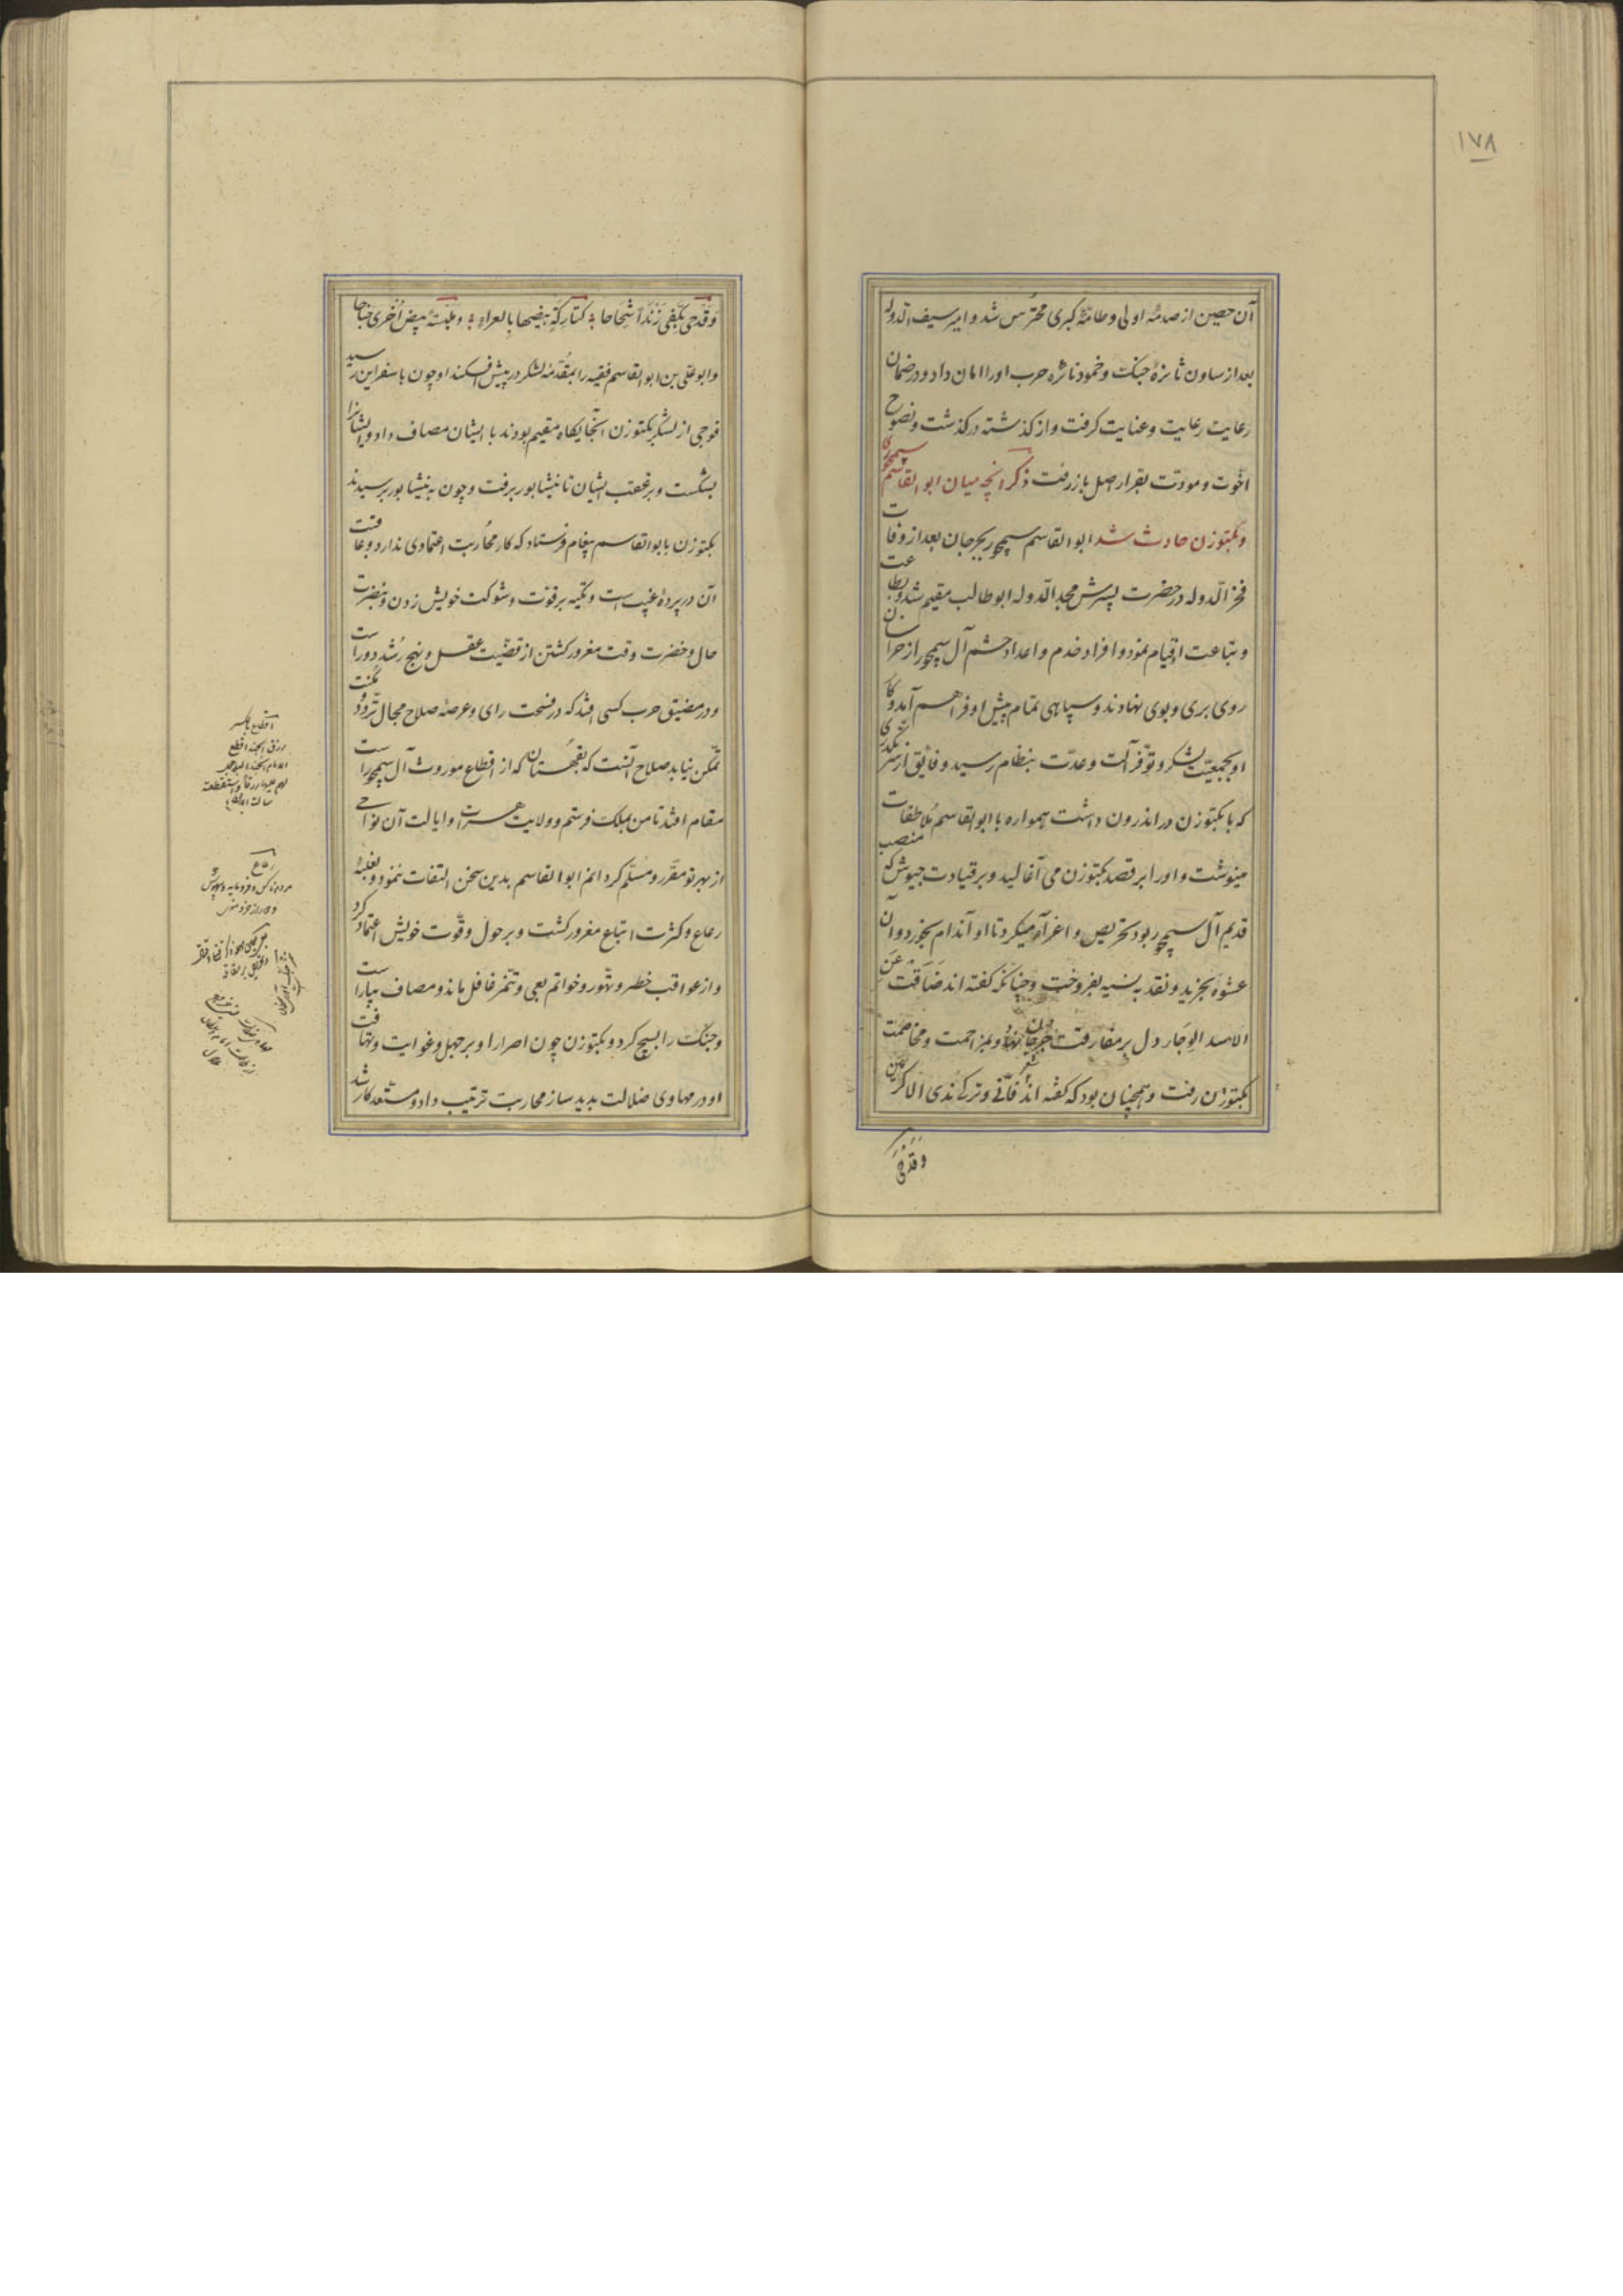 ١٧٨
آن حصین از صدمهٔ اولی و طامّهٔ کبری محترس شد و امیر سیف الدوله
بعد از سکون نائرهٔ جنکت و خمود نائره حرب او را امان داد و در ضمان
رعایت رعایت و عنایت کرفت و از کذشته درکذشت و نصوح
اخوت و مودت بقرار اصل باز رفت ذکر آنچه میان ابو القاسم سیمجور
و بکتوزن حادث شد ابو القاسم سیمجور بجرجان بعد از وفات
فخر الدوله در حضرت پسرش مجد الدوله ابو طالب مقیم شد و بطاعت
و تباعت او قیام نمود و افراد خدم و اعداد حشم آل سیمجور از خراسان
روی بری و بوی نهادند و سپاهی تمام پیش او فراهم آمد و کار
او بجمعیّت لشکر و توفّر آلت و عدّت بنظام رسید و فائق از سر
که با بکتوزن در اندرون داشت همواره با ابو القاسم مُلاطفات
مینوشت و او را بر قصد بکتوزن می آغالید و بر قیادت جیوش که منصب
قدیم آل سیمجور بود تحریص و اغرآء میکرد تا او آن دام بخورد و آن
عشوه بخرید و نقد به نسیه بفروخت و چنانکه کفته اند ضاقت عن
الاسد الوجار دل بر مفارقت جرجان نهاد و بمزاحمت و مخاصمت
بکتوزن رفت و همچنان بود که کفته اند شعر فانّی و ترکی ندی الاکرمین
وقدحی
وَقَدحی بکفّی زَنداً شَحَاحا کتارکةٍ بیضها بالعراءِ و ملبسةٍ بیض اُخری جناحا
و ابو علی بن ابو القاسم فقیه را بمقدّمه لشکر در پیش افکند او چون باسفراین رسید
فوجی از لشکر بکتوزن آنجایکاه مقیم بودند با ایشان مصاف داد و ایشانرا
بشکست و بر عقب ایشان تا نیشابور برفت و چون به نیشابور رسیدند
بکتوزن بابو القاسم پیغام فرستاد که کار محاربت اعتمادی ندارد و عاقبت
آن در پردهٔ غیب است و تکیه بر قوت و شوکت خویش زدن و بنضرت
حال و خضرت وقت مغرور کشتن از قضیّت عقل و نهج رشد دور است
و در مضیق حرب کسی افتد که در فسحت رای و عرصه صلاح مجال تردّد و مُکنت
تمکن نیابد صلاح آنست که بقهستان که از اقطاع موروث آل سیمجور است
مقام افتد تا من بملک فرستم و ولایت هرات و ایالت آن نواحی
از بهر تو مقرّر و مسلّم کردانم ابو القاسم بدین سخن التفات ننمود و بغلبهٔ
رعاع و کثرت اتباع مغرور کشت و بر حول و قوّت خویش اعتماد کرد
و از عواقب خطر و تهور و خواتم بغی و تنمّر غافل ماند و مصاف بیاراست
و جنکت را بسیج کرد و بکتوزن چون اصرار او بر جهل و غوایت و تهافت
او در مهاوی ضلالت بدید ساز محاربت ترتیب داد و مستعد کار شد
رعاع